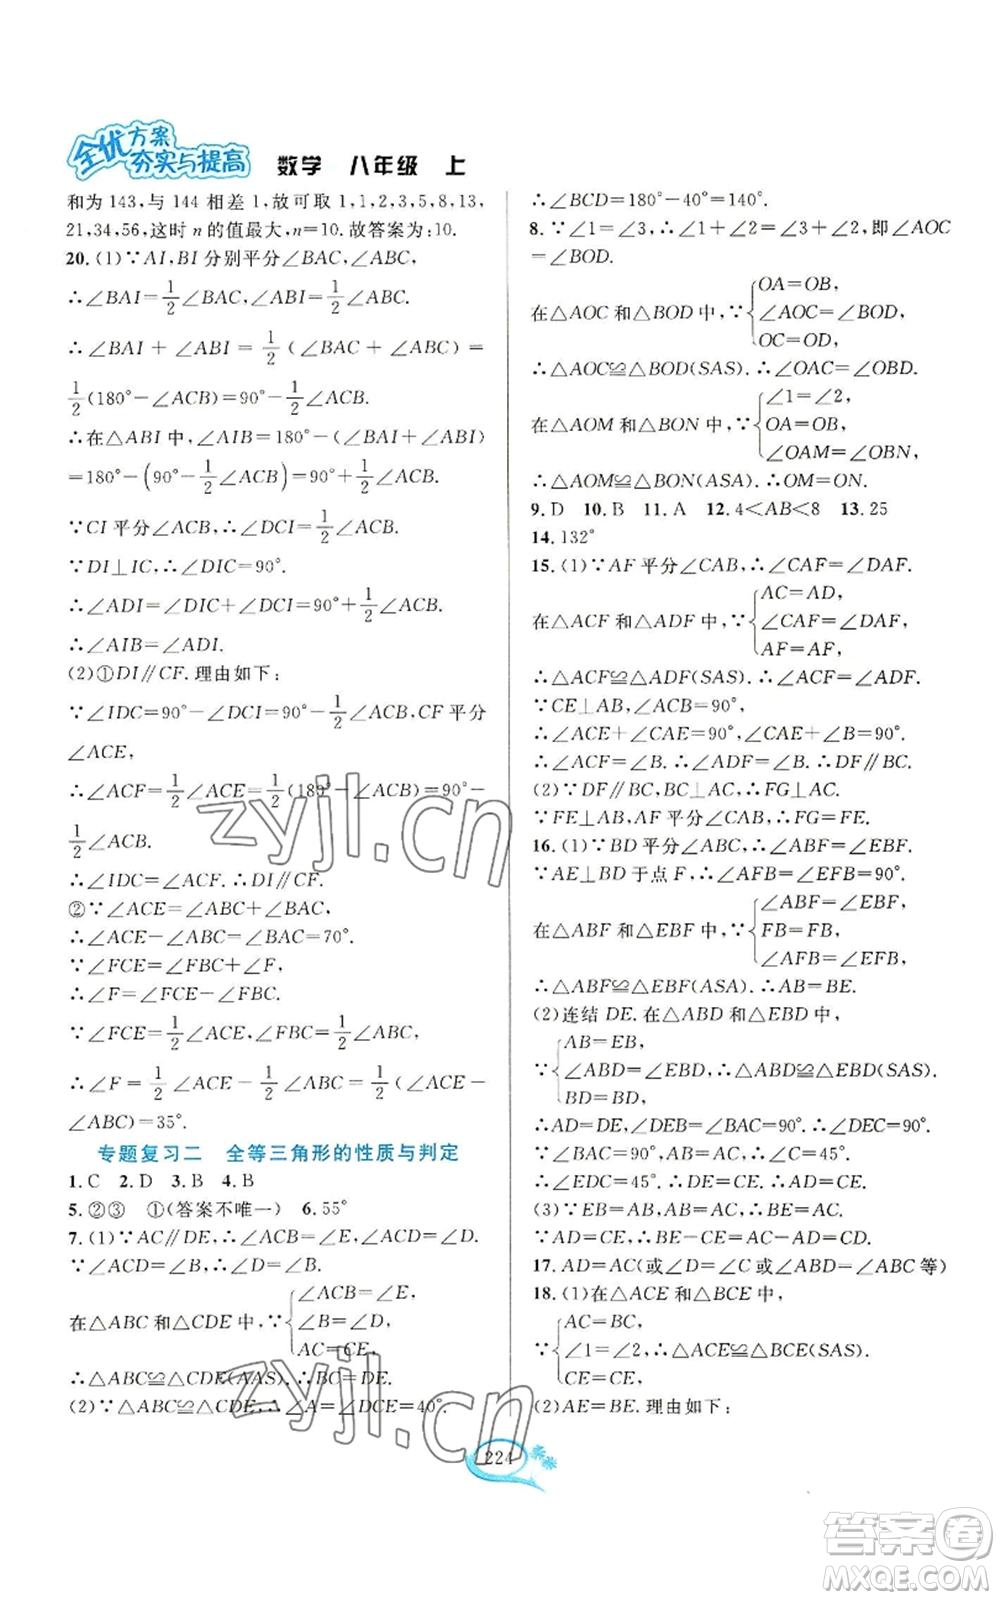 全优方案
夯实与提高 数学 八年级 上
和为 143,与 144 相差 1,故可取 1,1,2,3,5,8,13,
21,34,56,这时 n 的值最大,n=10.故答案为:10.
20.(1)∵AI,BI 分别平分∠BAC,∠ABC,
∴∠BAI=1/2∠BAC,∠ABI=1/2∠ABC.
∴∠BAI+∠ABI=1/2(∠BAC+∠ABC)=
1/2(180°-∠ACB)=90°-1/2∠ACB.
∴在△ABI 中,∠AIB=180°-(∠BAI+∠ABI)
=180°-(90°-1/2∠ACB)=90°+1/2∠ACB.
∵CI 平分∠ACB,∴∠DCI=1/2∠ACB.
∵DI⊥IC,∴∠DIC=90°.
∴∠ADI=∠DIC+∠DCI=90°+1/2∠ACB.
∴∠AIB=∠ADI.
(2)①DI∥CF.理由如下:
∵∠IDC=90°-∠DCI=90°-1/2∠ACB,CF 平分
∠ACE,
∴∠ACF=1/2∠ACE=1/2(180°-∠ACB)=90°-
1/2∠ACB.
∴∠IDC=∠ACF.∴DI∥CF.
②∵∠ACE=∠ABC+∠BAC,
∴∠ACE-∠ABC=∠BAC=70°.
∵∠FCE=∠FBC+∠F,
∴∠F=∠FCE-∠FBC.
∵∠FCE=1/2∠ACE,∠FBC=1/2∠ABC,
∴∠F=1/2∠ACE-1/2∠ABC=1/2(∠ACE-
∠ABC)=35°.
专题复习二 全等三角形的性质与判定
1.C 2.D 3.B 4.B
5.②③ ①(答案不唯一) 6.55°
7.(1)∵AC∥DE,∴∠ACB=∠E,∠ACD=∠D.
∵∠ACD=∠B,∴∠B=∠D.
在△ABC 和△CDE 中,∵{∠ACB=∠E,
∠B=∠D,
AC=CE,
∴△ABC≌△CDE(AAS).∴BC=DE.
(2)∵△ABC≌△CDE,∴∠A=∠DCE=40°.
∴∠BCD=180°-40°=140°.
8.∵∠1=∠2,∴∠1+∠3=∠2+∠3,即∠AOC
=∠BOD.
在△AOC 和△BOD 中,∵{OA=OB,
∠AOC=∠BOD,
OC=OD,
∴△AOC≌△BOD(SAS).∴∠OAC=∠OBD.
在△AOM 和△BON 中,∵{∠1=∠2,
OA=OB,
∠OAM=∠OBN,
∴△AOM≌△BON(ASA).∴OM=ON.
9.D 10.B 11.A 12.4<AB<8 13.25
14.132°
15.(1)∵AF 平分∠CAB,∴∠CAF=∠DAF.
在△ACF 和△ADF 中,∵{AC=AD,
∠CAF=∠DAF,
AF=AF,
∴△ACF≌△ADF(SAS).∴∠ACF=∠ADF.
∵CE⊥AB,∠ACB=90°,
∴∠ACE+∠CAE=90°,∠CAE+∠B=90°.
∴∠ACF=∠B.∴∠ADF=∠B.∴DF∥BC.
(2)∵DF∥BC,BC⊥AC,∴FG⊥AC.
∵FE⊥AB,AF 平分∠CAB,∴FG=FE.
16.(1)∵BD 平分∠ABC,∴∠ABF=∠EBF.
∵AE⊥BD 于点 F,∴∠AFB=∠EFB=90°.
在△ABF 和△EBF 中,∵{∠ABF=∠EBF,
FB=FB,
∠AFB=∠EFB,
∴△ABF≌△EBF(ASA).∴AB=BE.
(2)连结 DE.在△ABD 和△EBD 中,
∵{AB=EB,
∠ABD=∠EBD,∴△ABD≌△EBD(SAS).
BD=BD,
∴∠DEB=∠BAC=90°.∴∠DEC=90°.
∵AB=AC,∠BAC=90°,∴∠C=45°.
∴∠EDC=45°.∴∠C=∠EDC.∴CE=DE.
(3)∵EB=AB,AB=AC,∴EB=AC.
∵AD=DE,DE=CE,∴AD=CE.
17.AD=AC(或∠D=∠C 或∠ABD=∠ABC 等)
18.(1)在△ACE 和△BCE 中,
∵{AC=BC,
∠1=∠2,∴△ACE≌△BCE(SAS).
CE=CE,
(2)AE=BE.理由如下:
224
zyjl.cn
zyjl.cn
答案卷
MXQE.COM